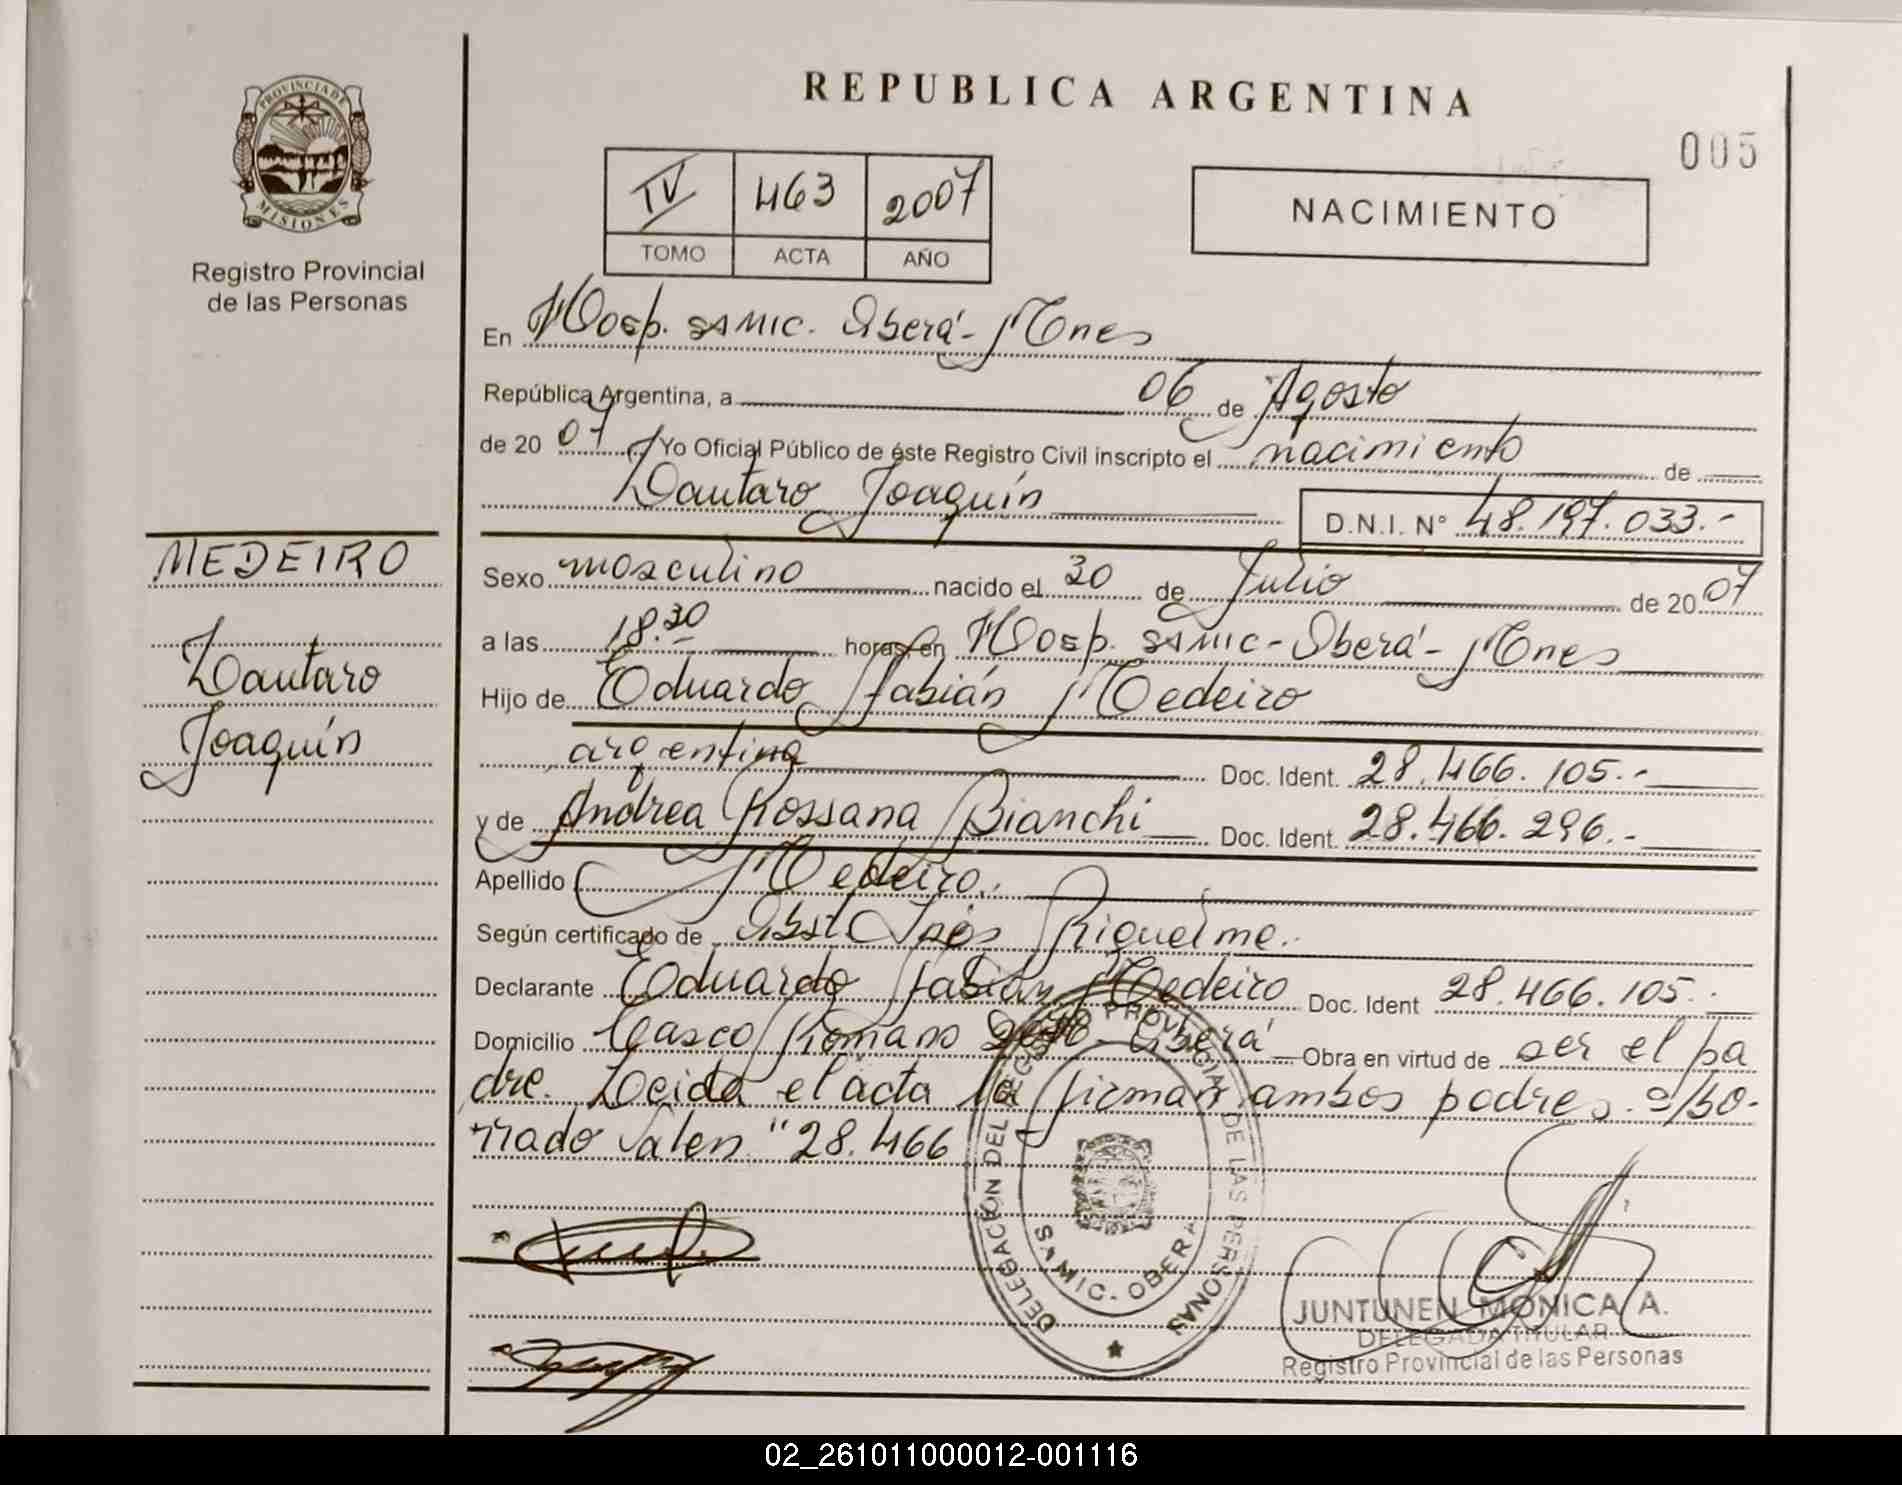 REPUBLICA ARGENTINA
005
PROVINCIA DE
MISIONES
Registro Provincial
de las Personas
IV 463 2007
TOMO ACTA AÑO
NACIMIENTO
En Hosp. SAMIC. Oberá - Mnes
República Argentina, a 06 de Agosto
de 20 07 Yo Oficial Público de éste Registro Civil inscripto el nacimiento de
Lautaro Joaquín
D.N.I. N° 48.197.033.-
MEDEIRO
Lautaro
Joaquín
Sexo masculino nacido el 30 de Julio de 20 07
a las 18.30 horas en Hosp. SAMIC - Oberá - Mnes
Hijo de Eduardo Fabián Medeiro
argentina Doc. Ident. 28.466.105.-
y de Andrea Rossana Bianchi Doc. Ident. 28.466.296.-
Apellido Medeiro.
Según certificado de Obst Inés Riquelme.
Declarante Eduardo Fabián Medeiro Doc. Ident 28.466.105.
Domicilio Casco Romano Oberá Obra en virtud de ser el pa
dre. Leida el acta la firman ambos padres. s/bo-
rrado Valen "28.466
DELEGACIÓN DEL REGISTRO PROVINCIAL DE LAS PERSONAS
SAMIC. OBERA
JUNTUNEN MONICA A.
DELEGADA TITULAR
Registro Provincial de las Personas
02_261011000012-001116